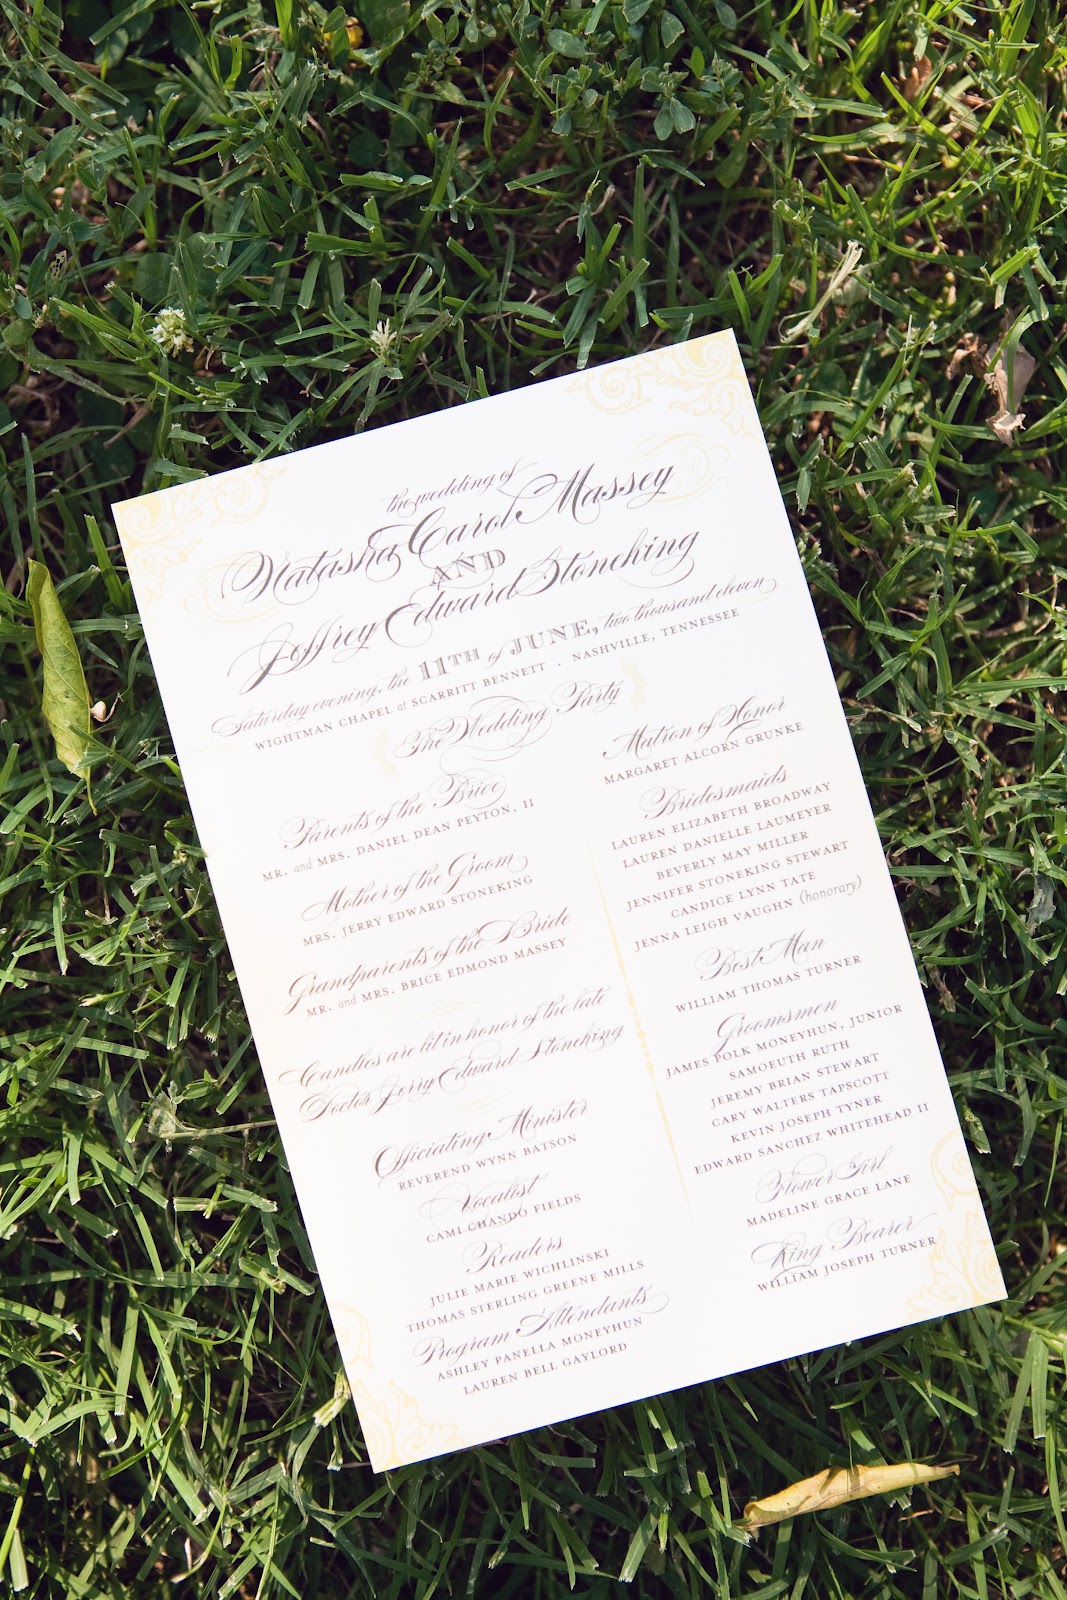 the wedding of
Natasha Carol Massey
AND
Jeffrey Edward Stoneking
Saturday evening, the 11TH of JUNE, two thousand eleven
WIGHTMAN CHAPEL at SCARRITT BENNETT · NASHVILLE, TENNESSEE
The Wedding Party
Parents of the Bride
MR. and MRS. DANIEL DEAN PEYTON, II
Mother of the Groom
MRS. JERRY EDWARD STONEKING
Grandparents of the Bride
MR. and MRS. BRICE EDMOND MASSEY
Candles are lit in honor of the late
Doctor Jerry Edward Stoneking
Officiating Minister
REVEREND WYNN BATSON
Vocalist
CAMI CHANDO FIELDS
Readers
JULIE MARIE WICHLINSKI
THOMAS STERLING GREENE MILLS
Program Attendants
ASHLEY PANELLA MONEYHUN
LAUREN BELL GAYLORD
Matron of Honor
MARGARET ALCORN GRUNKE
Bridesmaids
LAUREN ELIZABETH BROADWAY
LAUREN DANIELLE LAUMEYER
BEVERLY MAY MILLER
JENNIFER STONEKING STEWART
CANDICE LYNN TATE
JENNA LEIGH VAUGHN (honorary)
Best Man
WILLIAM THOMAS TURNER
Groomsmen
JAMES POLK MONEYHUN, JUNIOR
SAMOEUTH RUTH
JEREMY BRIAN STEWART
CARY WALTERS TAPSCOTT
KEVIN JOSEPH TYNER
EDWARD SANCHEZ WHITEHEAD II
Flower Girl
MADELINE GRACE LANE
Ring Bearer
WILLIAM JOSEPH TURNER